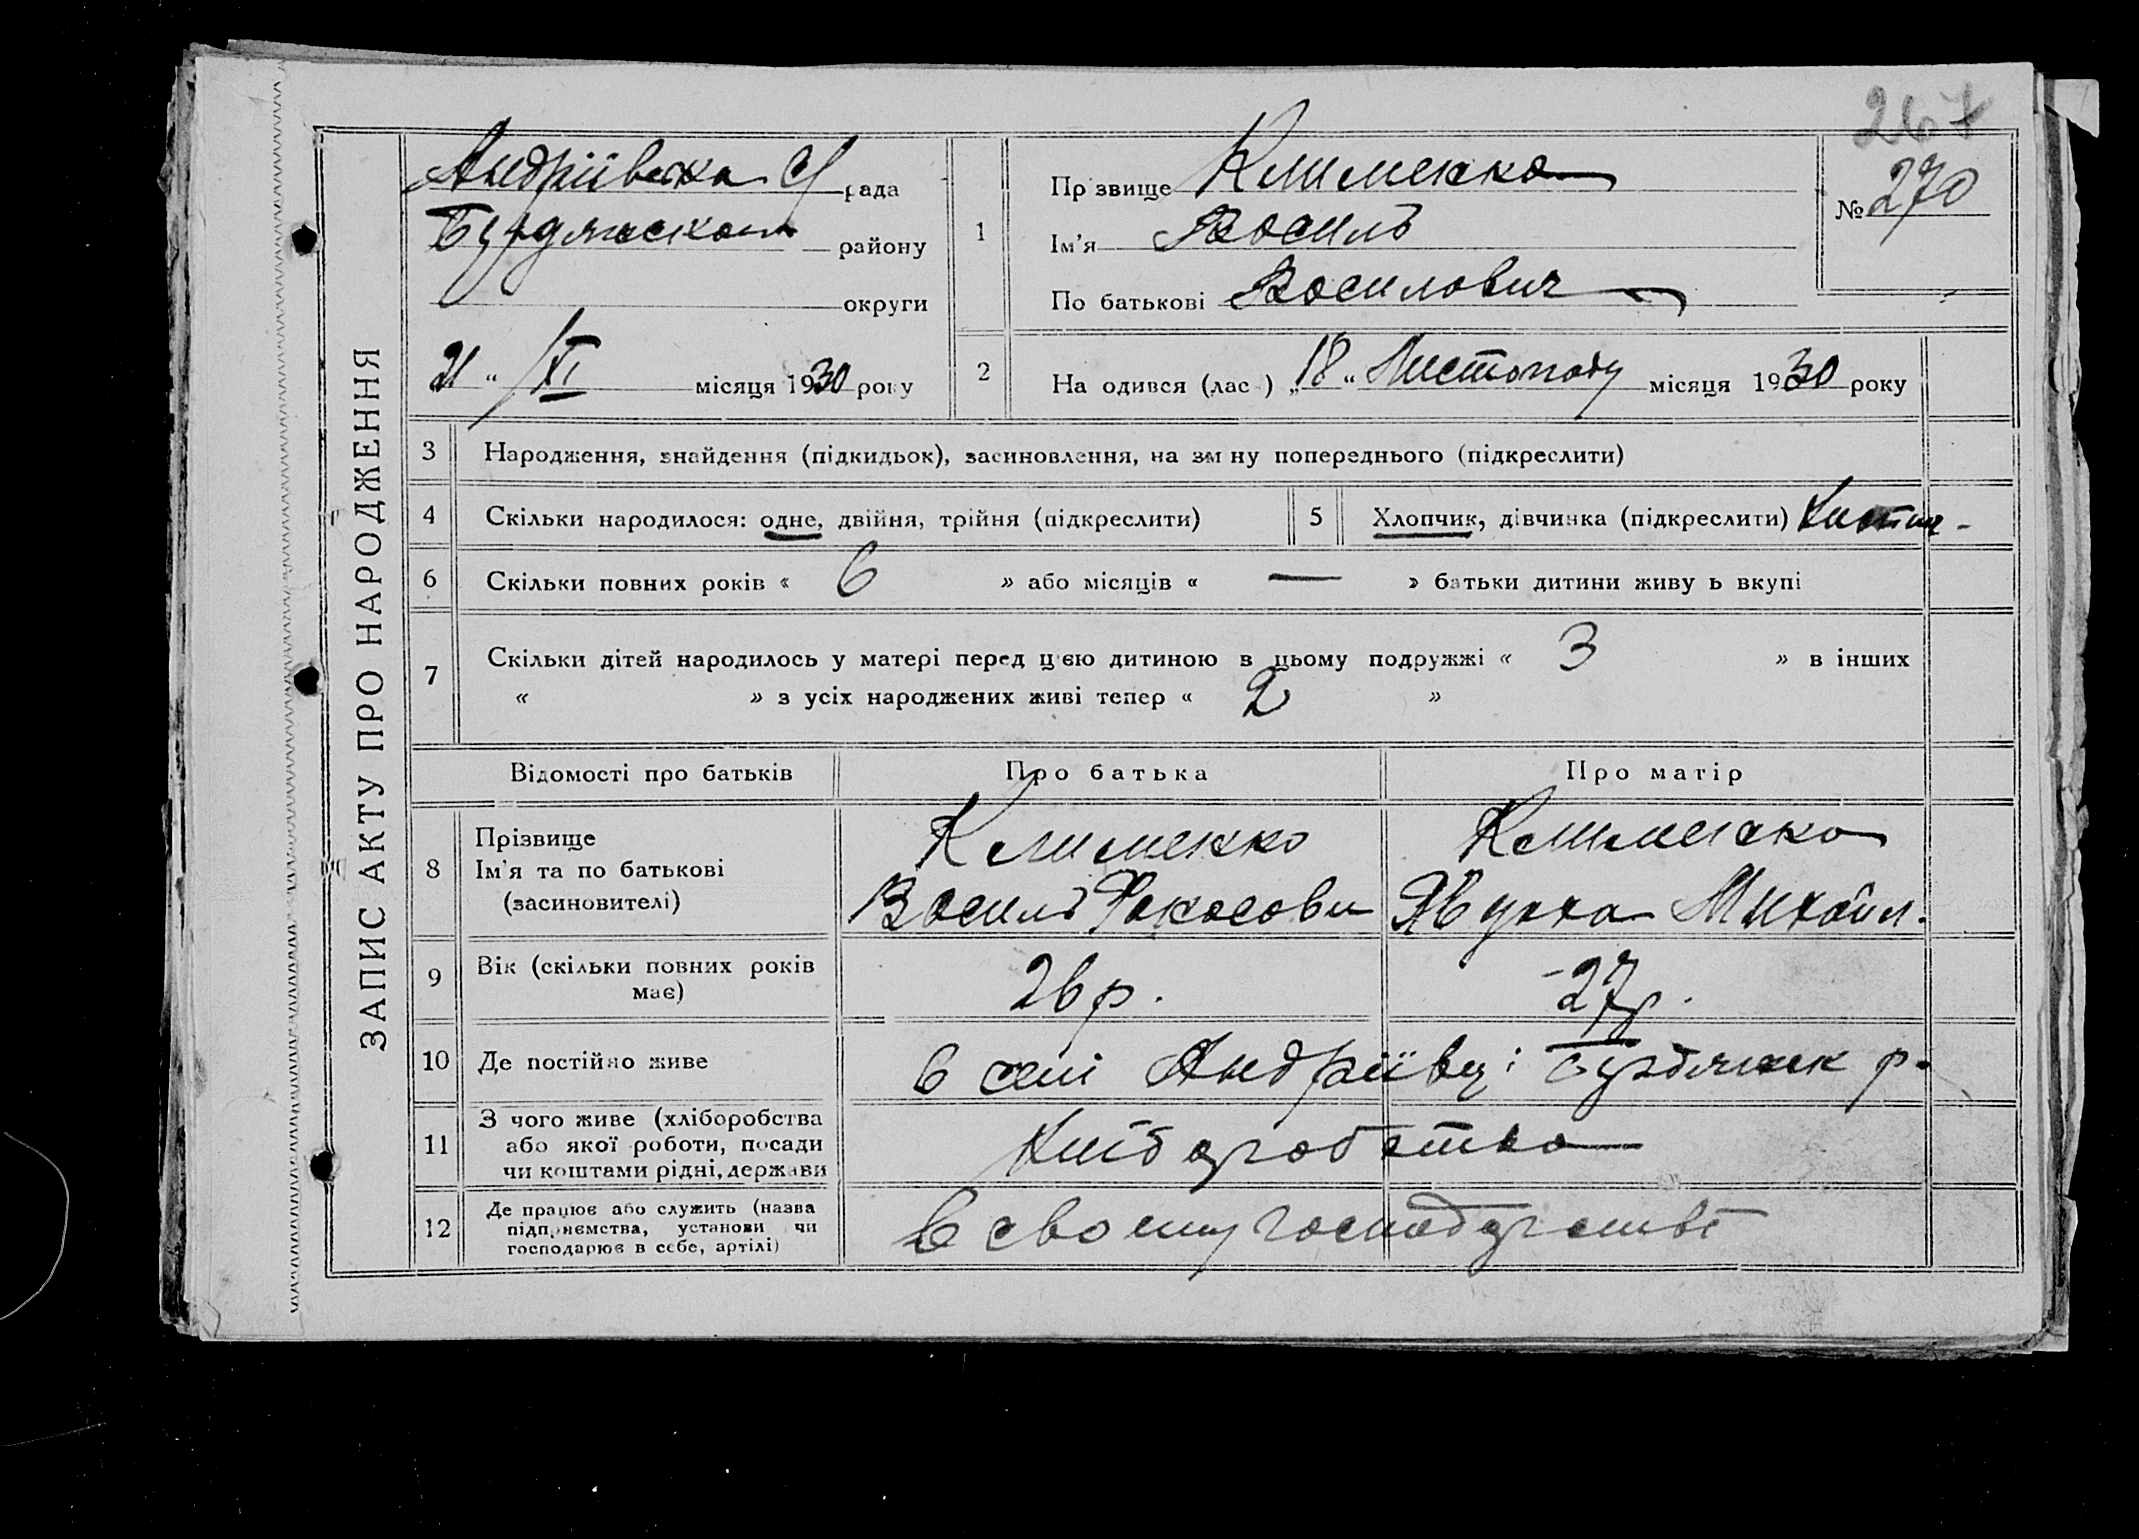 267
ЗАПИС АКТУ ПРО НАРОДЖЕННЯ
Андріївська С/рада
Бердянського району
округи
21 " / XI місяця 1930 року
1
Прізвище Клименко
Ім'я Василь
По батькові Василович
№ 270
2 На одився (лас ) „18 " Листопаду місяця 1930 року
3 Народження, знайдення (підкидьок), засиновлення, на зм ну попереднього (підкреслити)
4 Скільки народилося: одне, двійня, трійня (підкреслити)
5 Хлопчик, дівчинка (підкреслити) Хлопч -
6 Скільки повних років « 6 » або місяців « — » батьки дитини живу ь вкупі
7 Скільки дітей народилось у матері перед цією дитиною в цьому подружжі « 3 » в інших
« » з усіх народжених живі тепер « 2 »
Відомості про батьків Про батька Про матір
8 Прізвище
Ім'я та по батькові
(засиновителі)
Клименко
Василь
Клименко
Михайл.
9 Вік (скільки повних років
має)
26 р. 27 р.
10 Де постійно живе в селі Андріївці р.
11 З чого живе (хліборобства
або якої роботи, посади
чи коштами рідні, держави
Хліборобство
12 Де працює або служить (назва
підприємства, установи чи
господарює в себе, артілі)
В своєму господарстві